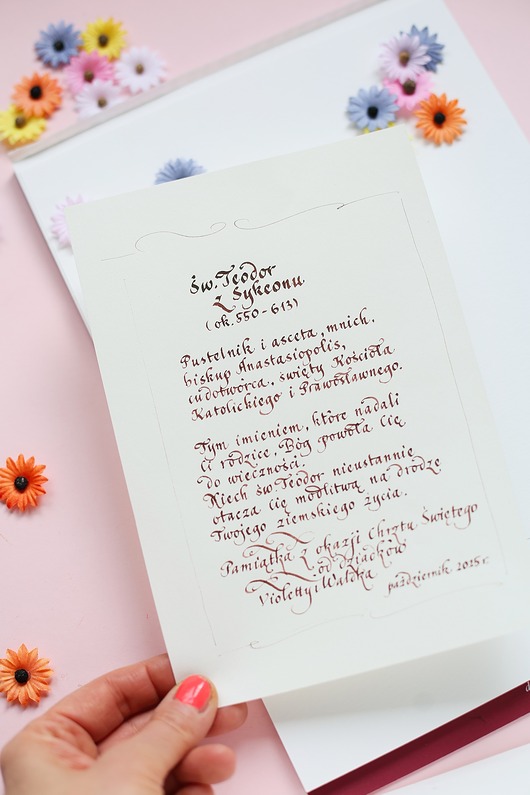 Św. Teodor
z Sykeonu
(ok. 550-613)
Pustelnik i asceta, mnich,
biskup Anastasiopolis,
cudotwórca, święty Kościoła
Katolickiego i Prawosławnego.
Tym imieniem, które nadali
Ci rodzice, Bóg powoła Cię
do wieczności.
Niech św. Teodor nieustannie
otacza Cię modlitwą na drodze
Twojego ziemskiego życia.
Pamiątka z okazji Chrztu Świętego
od dziadków
Violetty i Waldka
październik 2015 r.